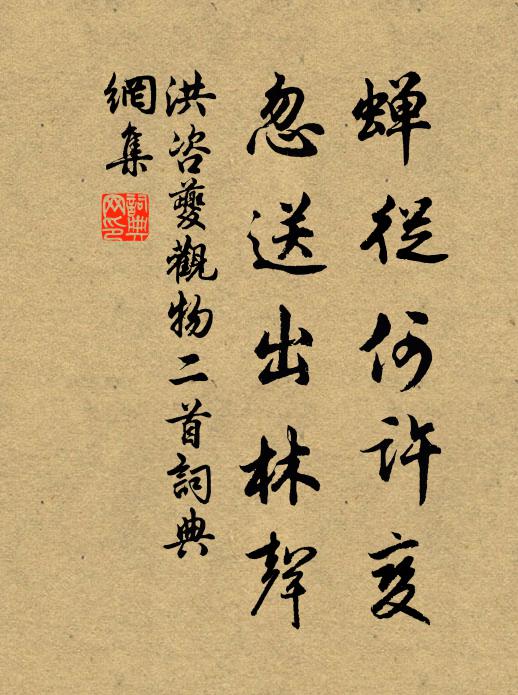 蝉從何許变
忽送出林聲
洪咨夔觀物二首詞典
網集
詞典
网印